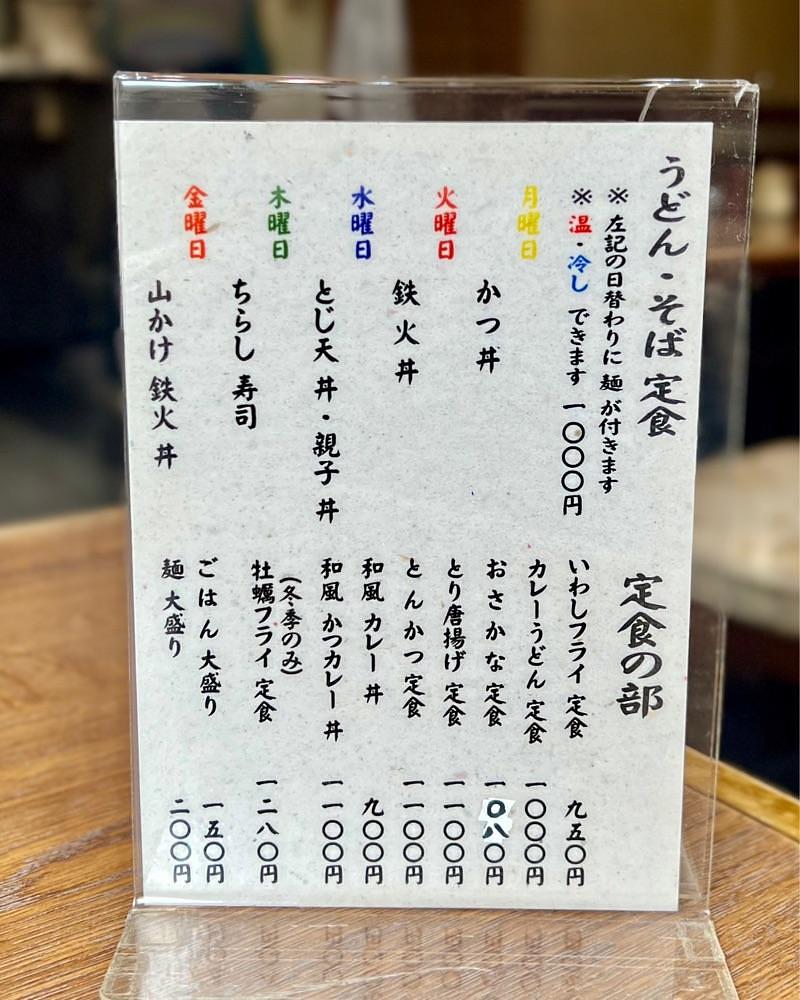 うどん・そば 定食
※ 左記の日替わりに 麺 が付きます
※ 温・冷し できます 一〇〇〇円
月曜日 かつ 丼
火曜日 鉄火 丼
水曜日 とじ天 丼・親子 丼
木曜日 ちらし 寿司
金曜日 山かけ 鉄火 丼
定食の部
いわしフライ 定食 九五〇円
カレーうどん 定食 一〇〇〇円
おさかな 定食 一〇八〇円
とり唐揚げ 定食 一一〇〇円
とんかつ 定食 一一〇〇円
和風 カレー 丼 九〇〇円
和風 かつカレー 丼 一一〇〇円
(冬季のみ)
牡蠣フライ 定食 一二八〇円
ごはん 大盛り 一五〇円
麺 大盛り 二〇〇円